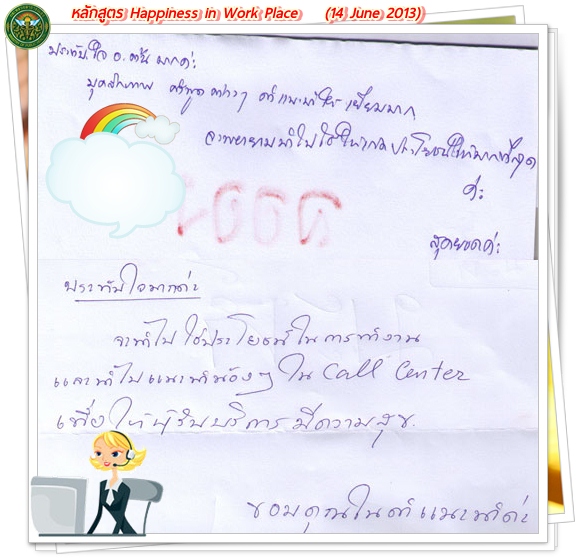 หลักสูตร Happiness in Work Place (14 June 2013)
ประทับใจ อ. มากค่ะ
บุคลิกภาพ คำพูดต่างๆ คำแนะนำให้ เยี่ยมมาก
จะพยายามนำไปใช้ให้เกิดประโยชน์ให้มากที่สุด
ค่ะ
สุดยอดค่ะ
ประทับใจมากค่ะ
จะนำไปใช้ประโยชน์ในการทำงาน
และนำไปแนะนำน้องๆ ใน Call Center
เพื่อให้ผู้รับบริการมีความสุข.
ขอบคุณในคำแนะนำค่ะ